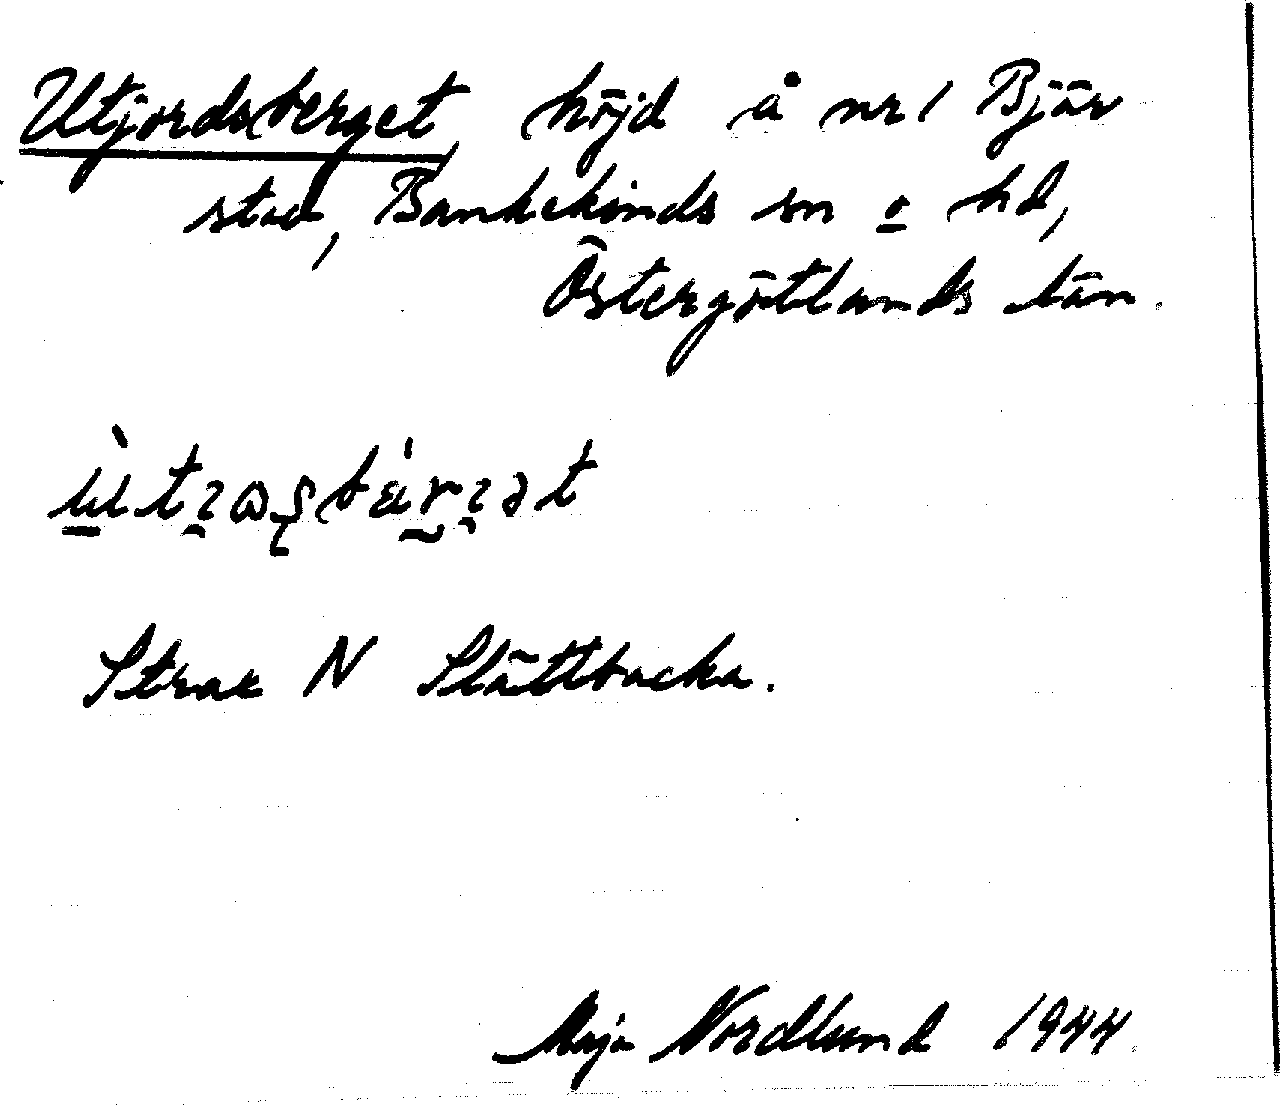 Utjordsberget, höjd å nr 1 Bjär
stad, Bankekinds sn o hd,
Östergötlands län.
Strax N Slättbacka.
Maja Nordlund 1944